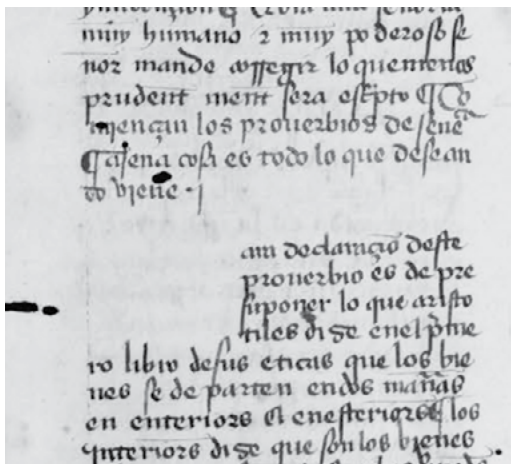 muy humano 2 muy poderoso se
nor mande corregir lo que menos
prudent ment sera escpto ¶ Co
miençan los prouerbios de sene
¶ Ajena cosa es todo lo que desean
do viene ·j
am declaraçio deste
prouerbio es de pre
suponer lo que aristo
tiles dize enel pme
ro libro desus eticas que los bie
nes se de parten endos mañas
en enteriors & enesteriores ¶ los
ynteriors dize que son los bienes